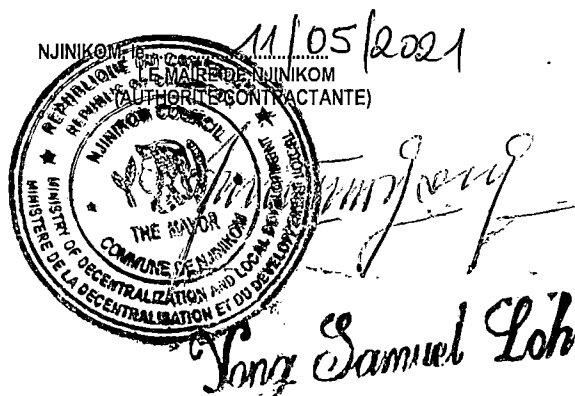 NJINIKOM, le 11/05/2021
LE MAIRE DE NJINIKOM
(AUTHORITE CONTRACTANTE)
REPUBLIQUE DU
REPUBLIC OF
NJINIKOM COUNCIL
THE MAYOR
COMMUNE DE NJINIKOM
MINISTRY OF DECENTRALIZATION AND LOCAL DEVELOPMENT
MINISTERE DE LA DECENTRALISATION ET DU DEVELOPPEMENT LOCAL
Yong Samuel Loh